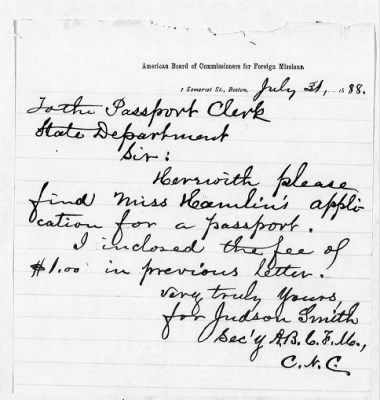 American Board of Commissioners for Foreign Missions.
1 Somerset St., Boston, July 31, 1888.
To the Passport Clerk
State Department
Sir:
Herewith please
find Miss Hamlin's appli-
cation for a passport.
I inclosed the fee of
$1.00 in previous letter.
Very truly yours,
for Judson Smith
Sec'y A.B.C.F.M.,
C.N.C.